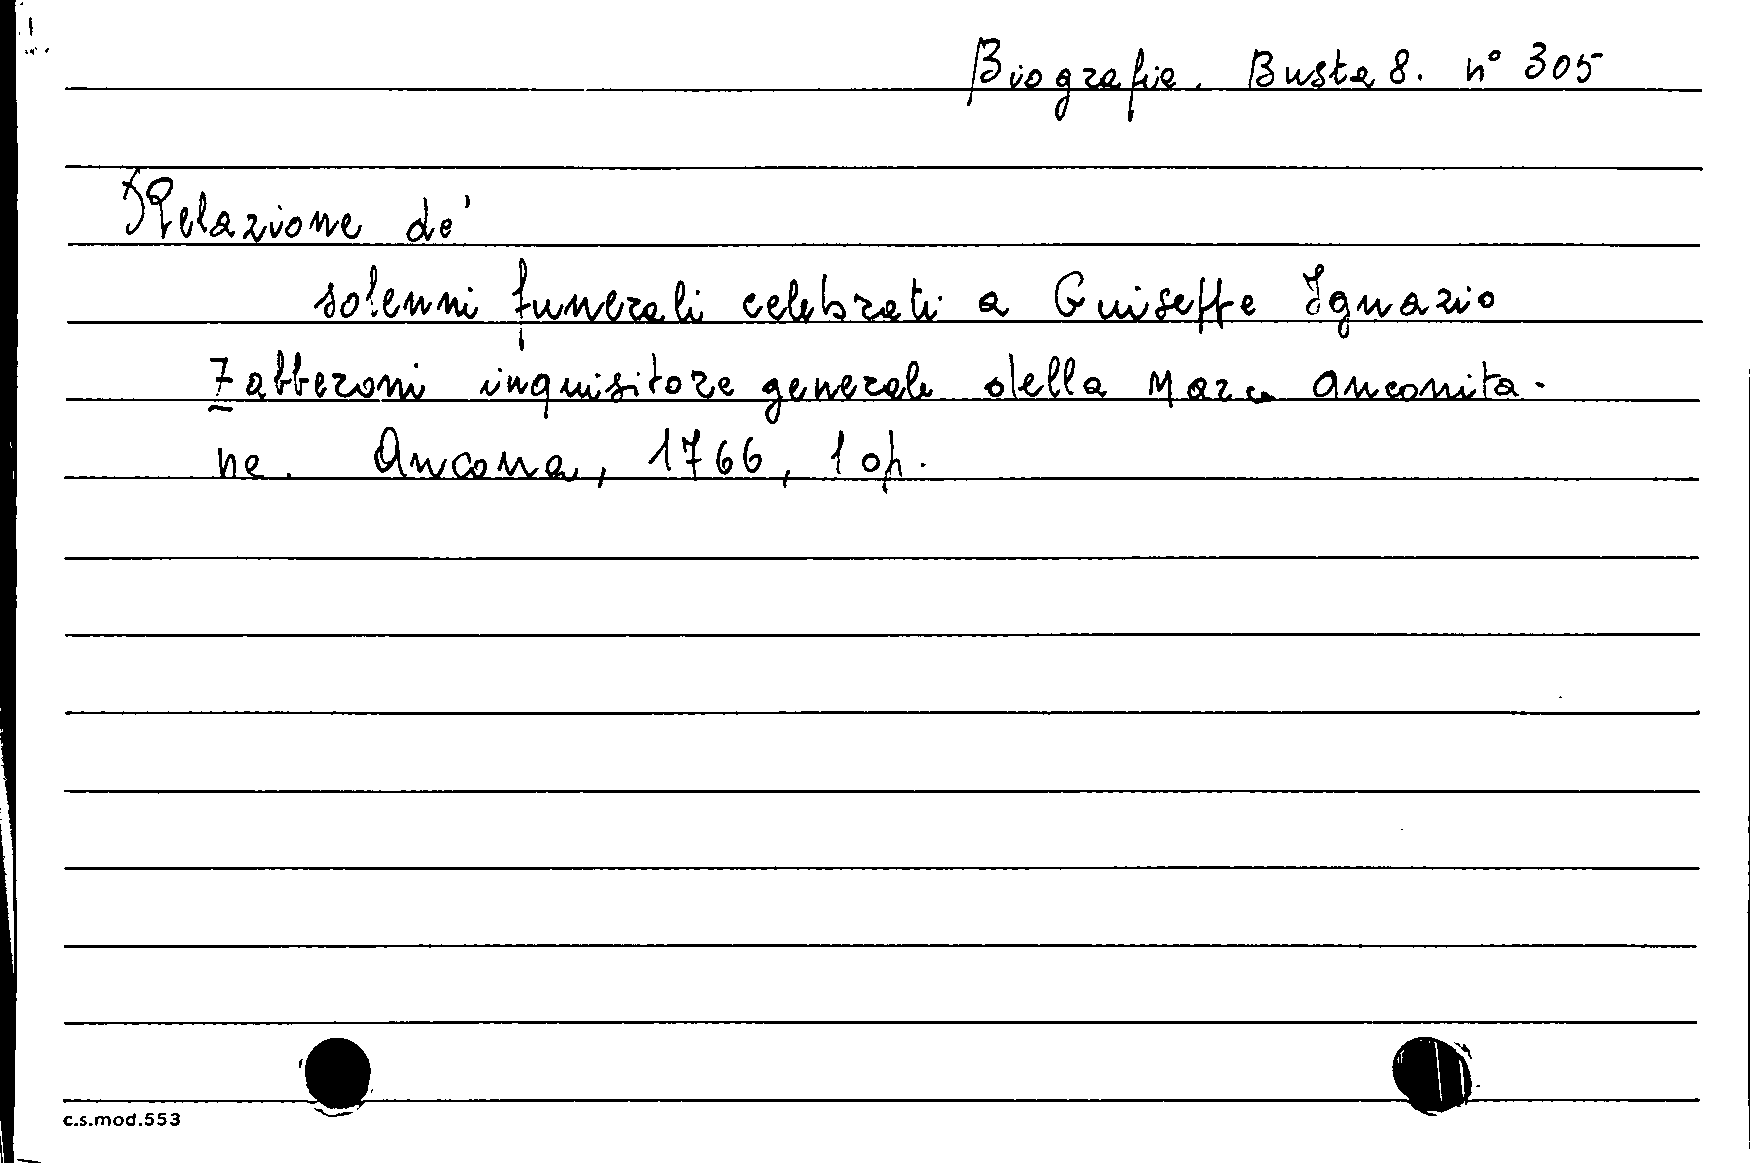 Biografie. Busta 8. n° 305
Relazione de'
solenni funerali celebrati a Giuseppe Ignazio
Zabberoni inquisitore generale della Marca Anconita-
na. Ancona, 1766, 1 op.
c.s.mod.553